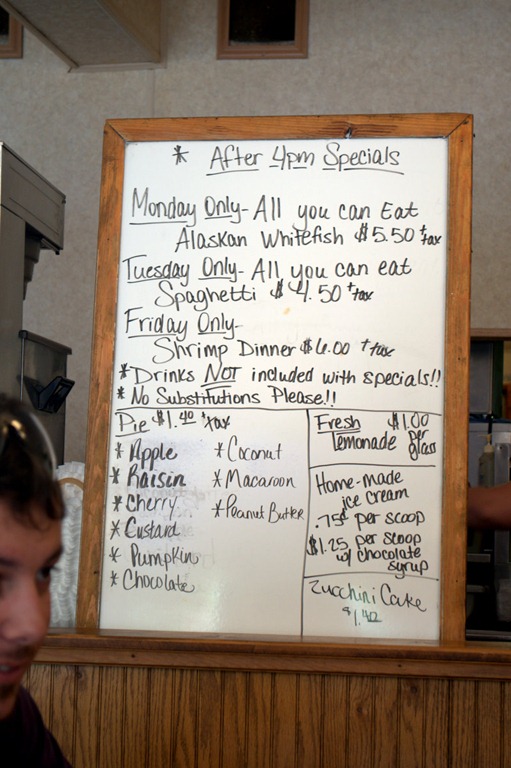 * After 4pm Specials
Monday Only- All you can Eat
Alaskan Whitefish $5.50 +tax
Tuesday Only- All you can eat
Spaghetti $4.50 +tax
Friday Only-
Shrimp Dinner $6.00 +tax
*Drinks NOT included with specials!!
* No Substitutions Please!!
Pie $1.40 +tax
* Apple
* Raisin
* Cherry
* Custard
* Pumpkin
* Chocolate
* Coconut
* Macaroon
* Peanut Butter
Fresh $1.00
lemonade per
glass
Home-made
ice cream
.75¢ per scoop
$1.25 per scoop
w/ chocolate
syrup
Zucchini Cake
$1.40